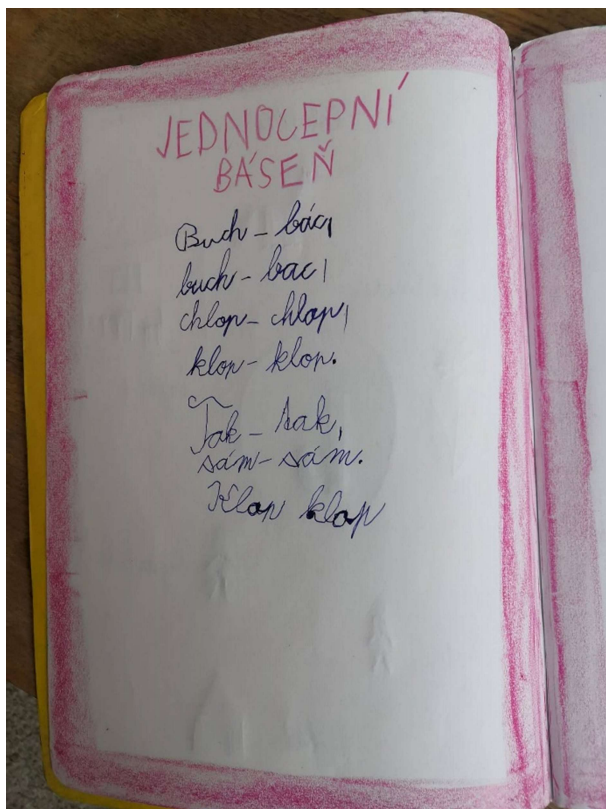 JEDNOCEPNÍ
BÁSEŇ
Buch - bác,
buch - bac,
chlop - chlop,
klop - klop.
Tak - tak,
sám - sám.
Klop klop